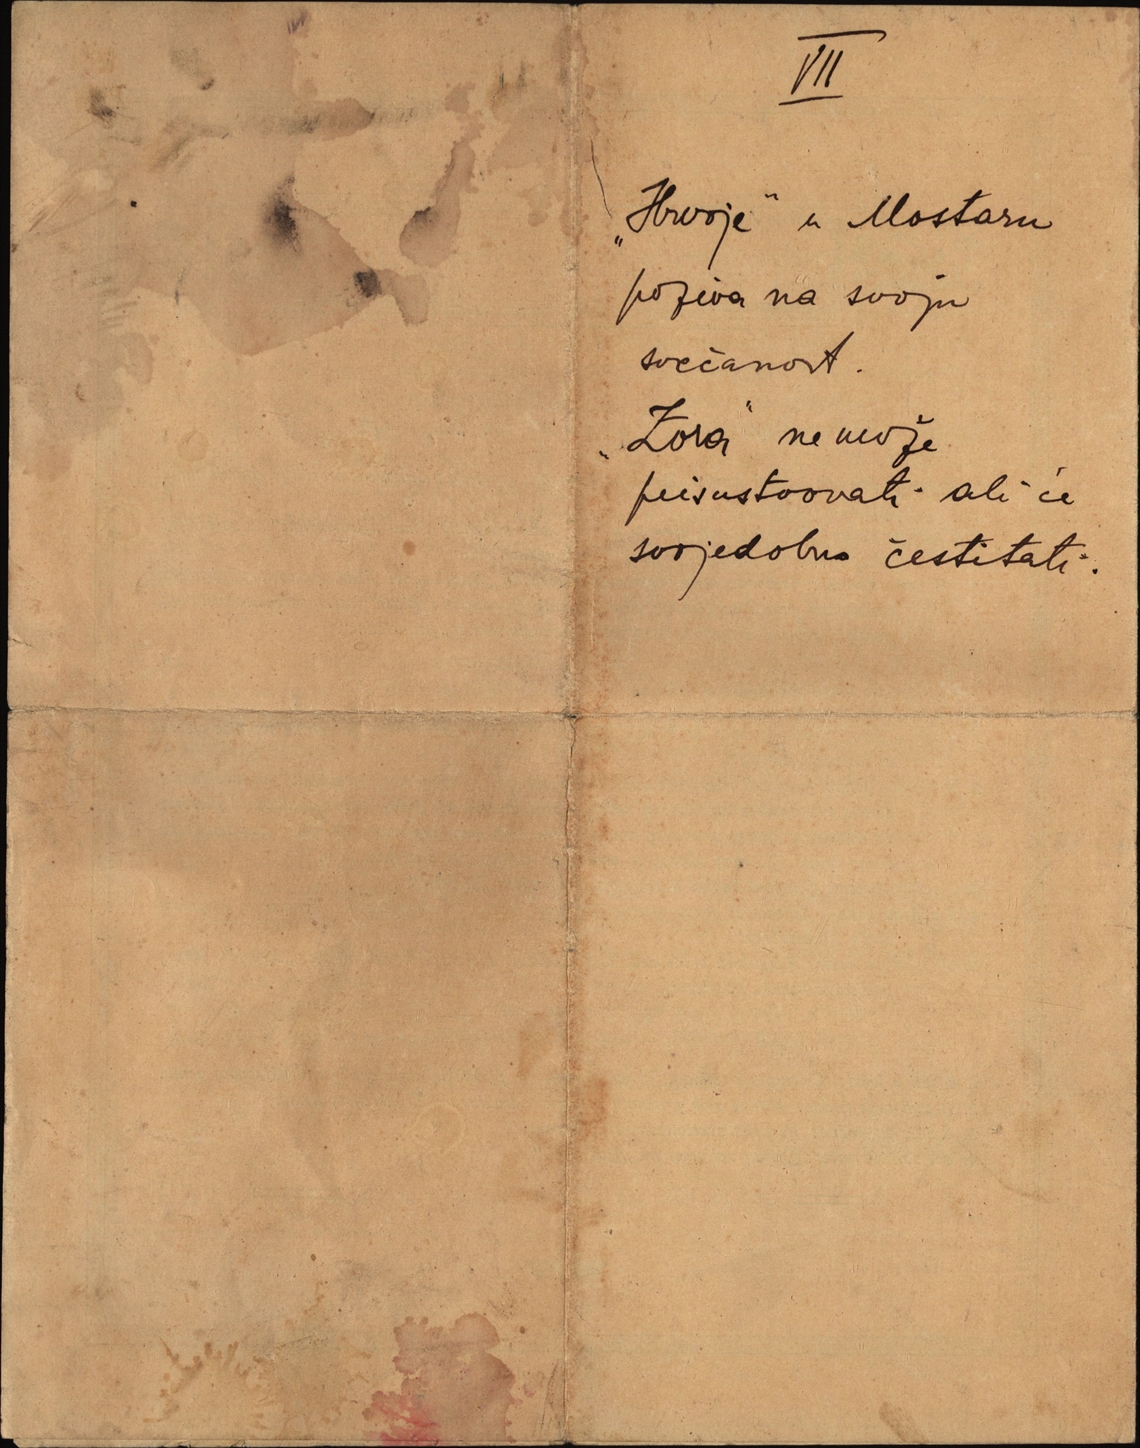 VII
„Hrvoje“ u Mostaru
poziva na svoju
svečanost.
„Zora“ ne može
prisustvovati ali će
svojedobno čestitati.